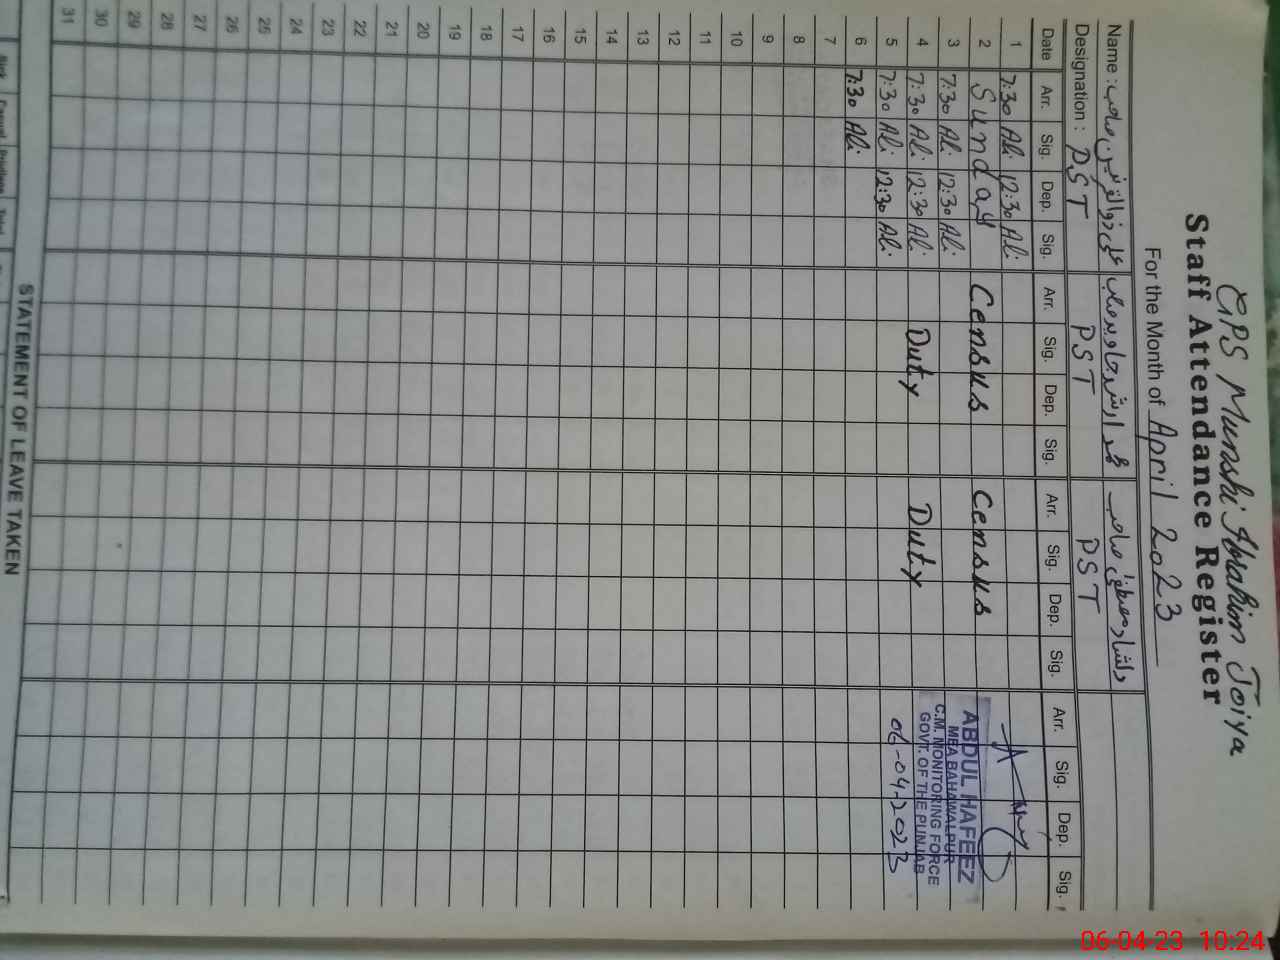 GPS Munshi Ibrahim Joiya
Staff Attendance Register
For the Month of April 2023
Name : علی ذوالقرنین صاحب محمد ارشد جاوید صاحب دلشاد مصطفیٰ صاحب
Designation : PST PST PST
Date Arr. Sig. Dep. Sig. Arr. Sig. Dep. Sig. Arr. Sig. Dep. Sig. Arr. Sig. Dep. Sig.
1 7:30 Ali 12:30 Ali
2 Sunday Census Census
3 7:30 Ali 12:30 Ali
4 7:30 Ali 12:30 Ali Duty Duty
5 7:30 Ali 12:30 Ali
6 7:30 Ali
7
8
9
10
11
12
13
14
15
16
17
18
19
20
21
22
23
24
25
26
27
28
29
30
31
ABDUL HAFEEZ
MEA BAHAWALPUR
C.M. MONITORING FORCE
GOVT. OF THE PUNJAB
06-04-2023
STATEMENT OF LEAVE TAKEN
06-04-23 10:24